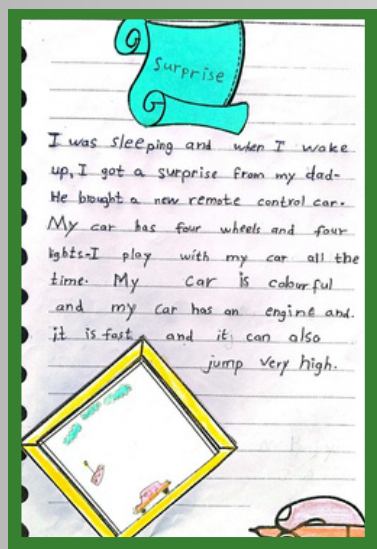 Surprise
I was sleeping and when I wake
up, I got a surprise from my dad-
He brought a new remote control car.
My car has four wheels and four
lights-I play with my car all the
time. My car is colourful
and my car has an engine and.
it is fast and it can also
jump very high.